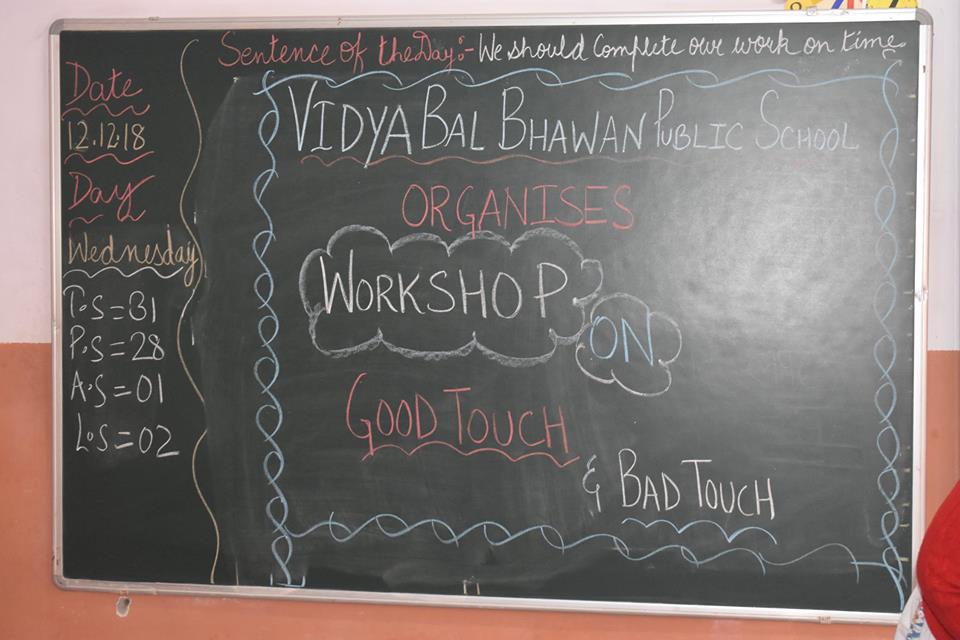 Date
12.12.18
Day
Wednesday
T.S=31
P.S=28
A.S=01
L.S=02
Sentence of the Day:- We should Complete our work on time.
VIDYA BAL BHAWAN PUBLIC SCHOOL
ORGANISES
WORKSHOP
ON
GOOD TOUCH
& BAD TOUCH